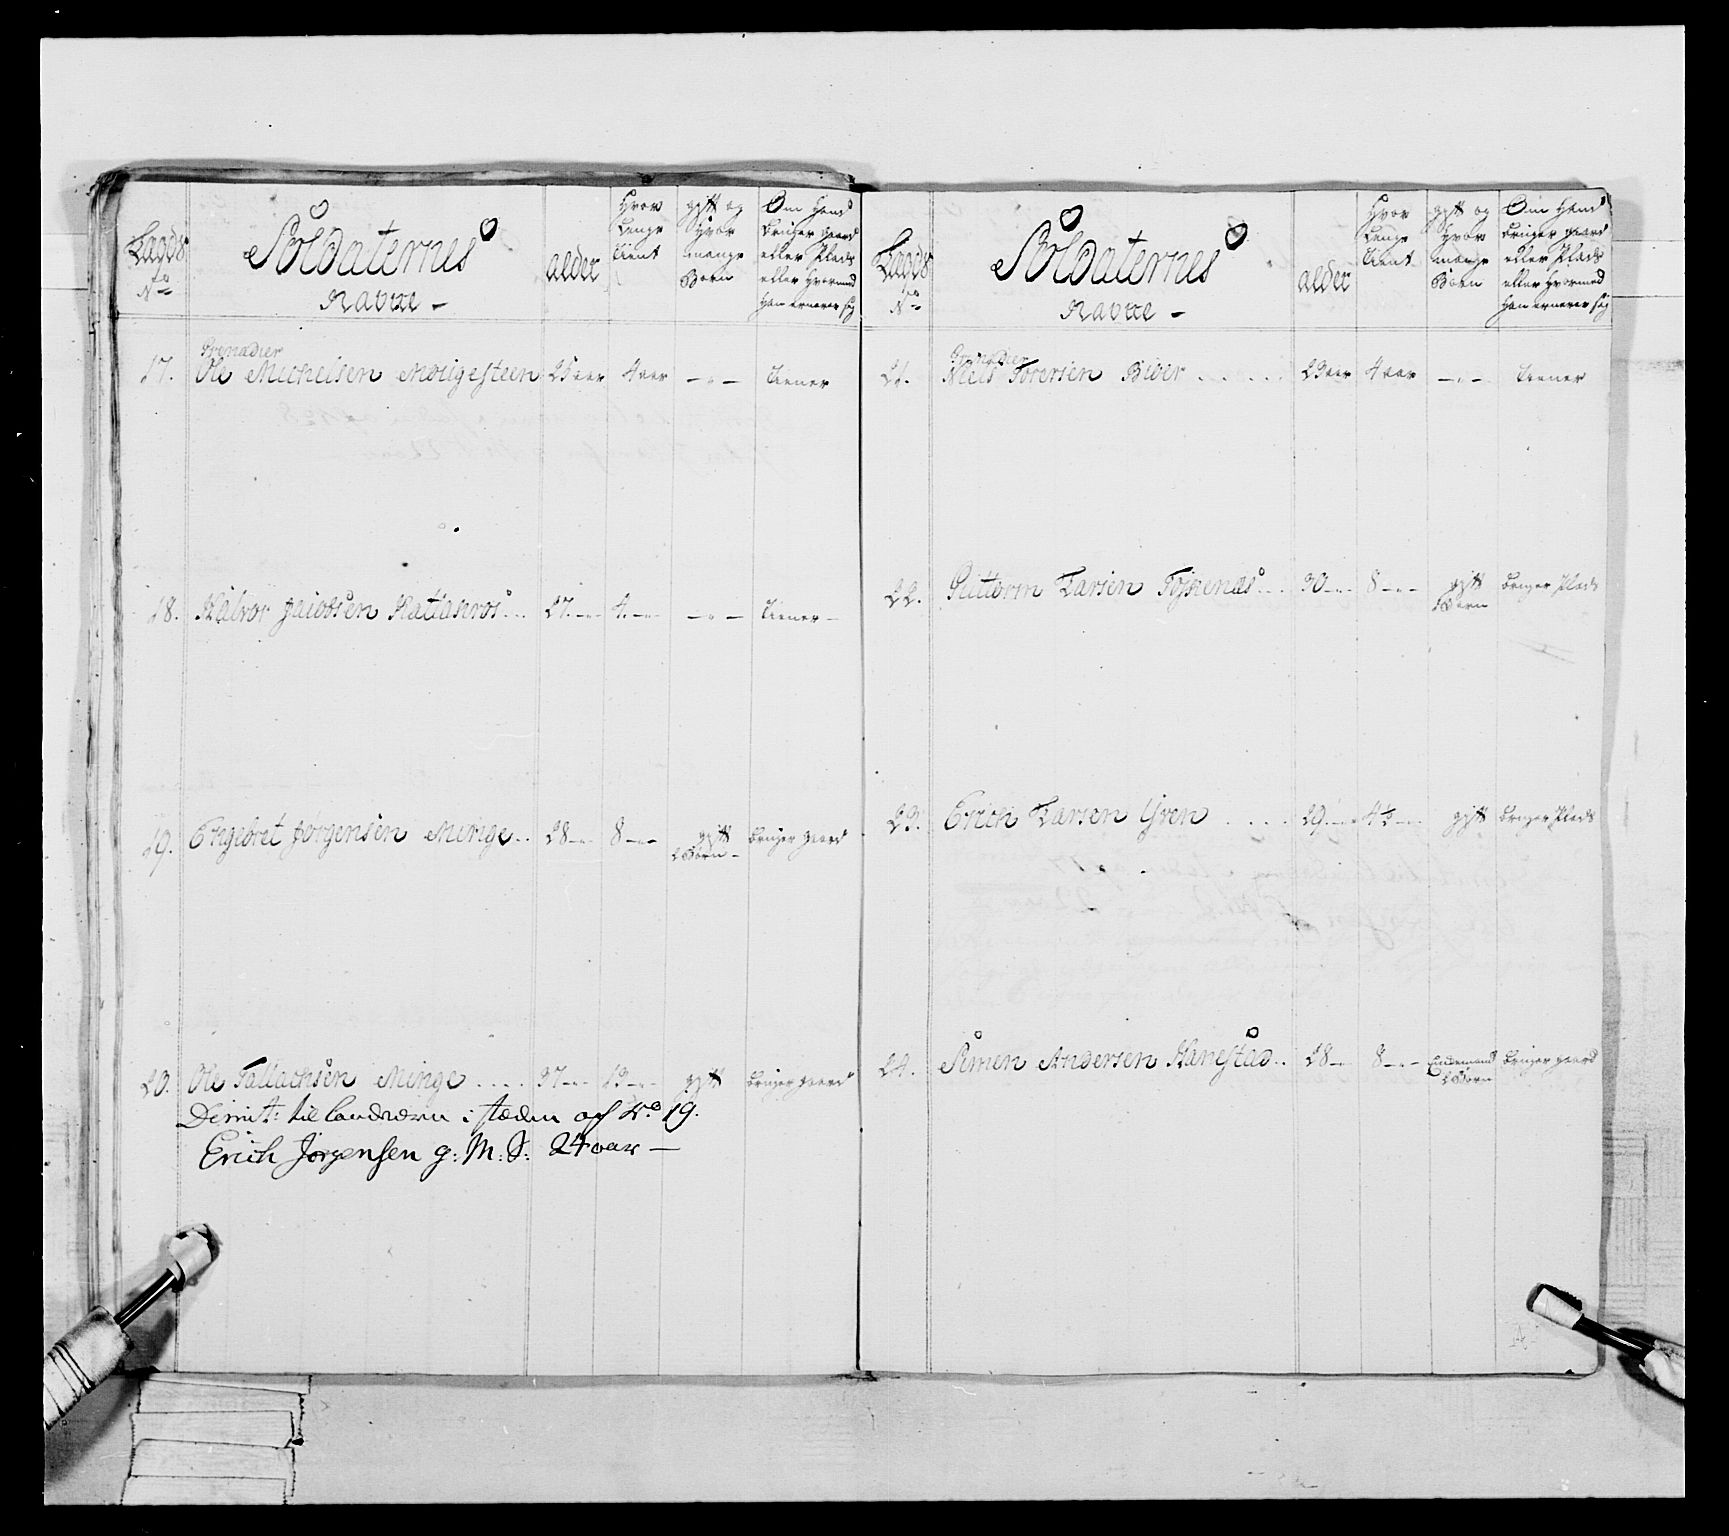 Lægds No
Soldaternes
Navne -
alder
Hvor
Lenge
tient
gift og
Hvor
mange
Børn
Om Hand
bruger gaard
eller Plads
eller Hvormed
Han ernerer sig
17. Grenadier
Ole Michelsen 25 aar 4 aar - " - tiener
18. Halvor Jacobsen 27 - " - 4 - " - - " - tiener -
19. Engebret Jørgensen Minge . . 28 - " - 8 - " - gift
Børn - bruger gaard
20. Ole Tallachsen Minge . . . . 37 - " - 13 - " - gift bruger gaard
Dimit: til landværn i stæden af No 19.
Erich Jørgensen g: M: S: 24 aar -
Lægds No
Soldaternes
Navne -
alder
Hvor
Lenge
tient
gift og
Hvor
mange
Børn
Om Hand
bruger gaard
eller Plads
eller Hvormed
Han ernerer sig
21. Grenadier
Niels Torersen . . . . . 23 aar 4 aar - " - tiener
22. Guttorm Larsen . . . 30 - " - 8 - " - gift
Børn bruger Plads
23. Erich Larsen Gren . . . . . 29 - " - 4½ - " - gift bruger Plads
24. Simen Andersen Hanestad . . 28 - " - 8 - " - Enkemand
Børn bruger gaard